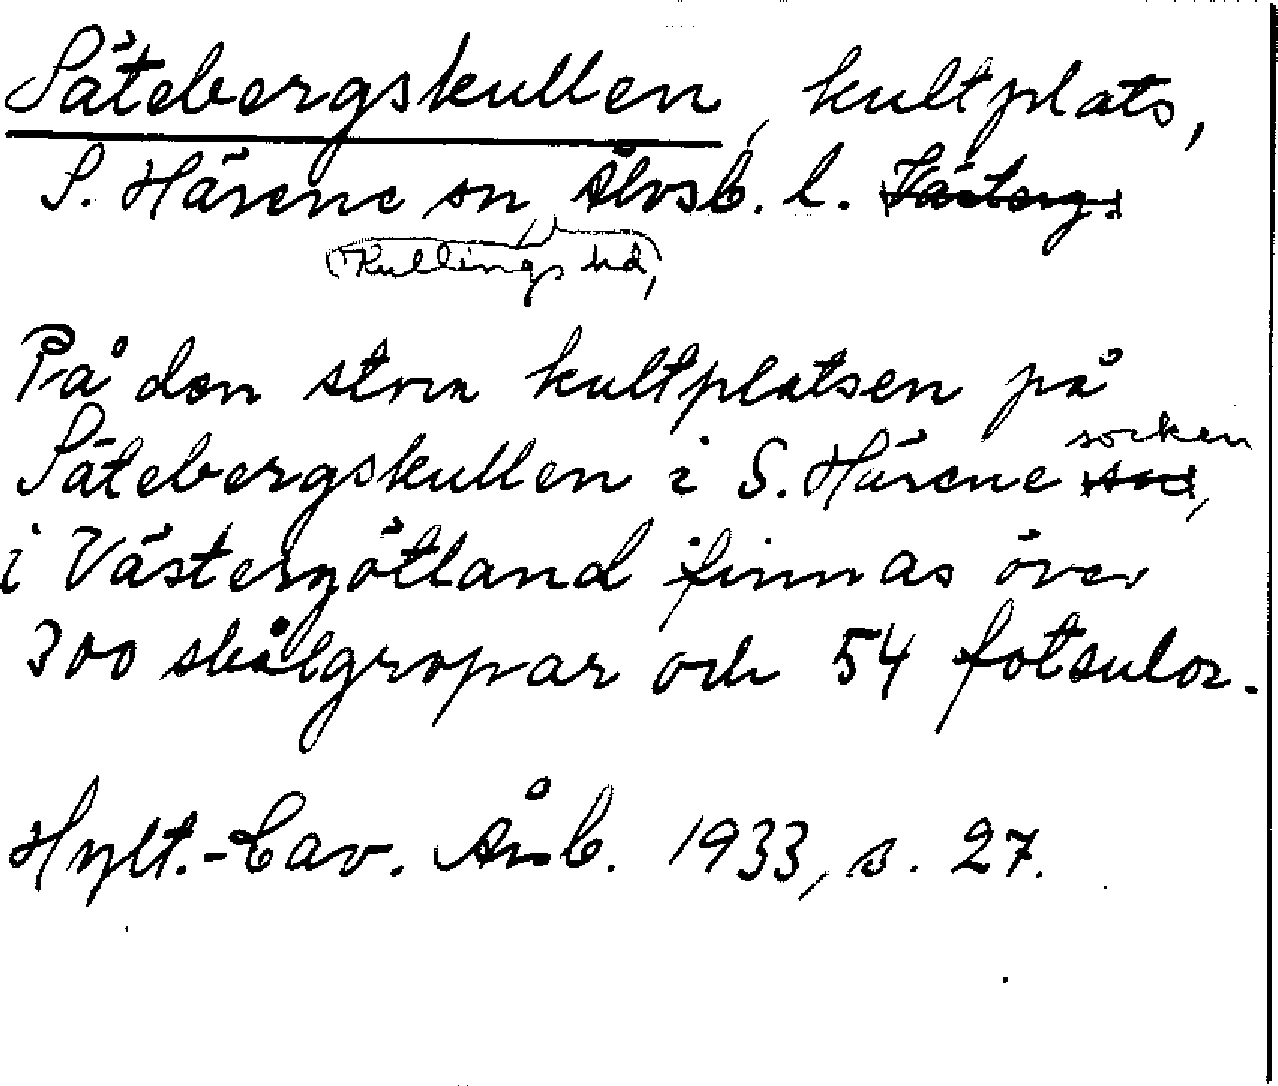 Sätebergskullen, kultplats,
S. Härene sn, Älvsb. l. Västerg.
Kullings hd,
På den stora kultplatsen på
Sätebergskullen i S. Härene socken,
i Västergötland finnas över
300 skålgropar och 54 fotsulor.
Hylt.-Cav. Årsb. 1933, s. 27.